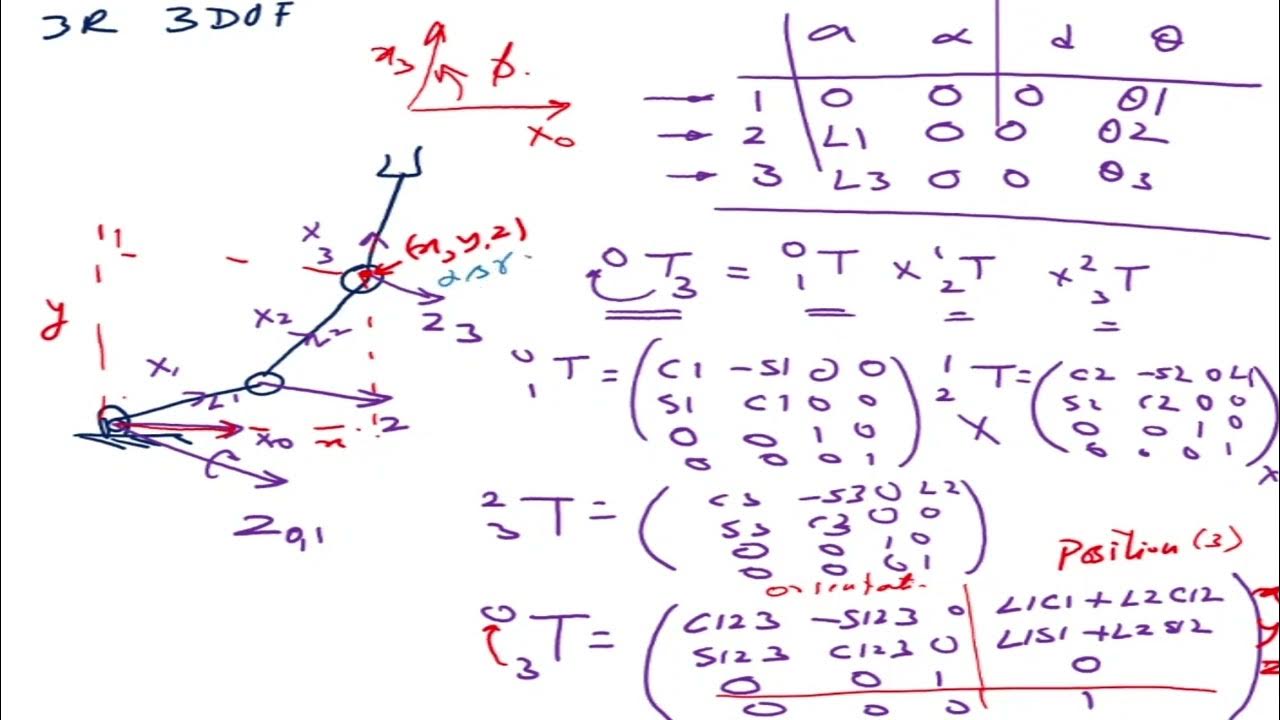 3R 3DOF
x3 φ.
x0
a α d θ
1 0 0 0 θ1
2 L1 0 0 θ2
3 L3 0 0 θ3
x3 (x,y,z)
αβγ.
z3
y
x2 L2
x1 L1
x0 x z
z0,1
0T3 = 01T × 12T × 23T
01T = ( C1 -S1 0 0
S1 C1 0 0
0 0 1 0
0 0 0 1 )
×
12T = ( C2 -S2 0 L1
S2 C2 0 0
0 0 1 0
0 0 0 1 ) ×
23T = ( C3 -S3 0 L2
S3 C3 0 0
0 0 1 0
0 0 0 1 )
orientat. Position (3)
03T = ( C123 -S123 0 L1C1 + L2C12 x
S123 C123 0 L1S1 + L2S12 y
0 0 1 0 z
0 0 0 1 )